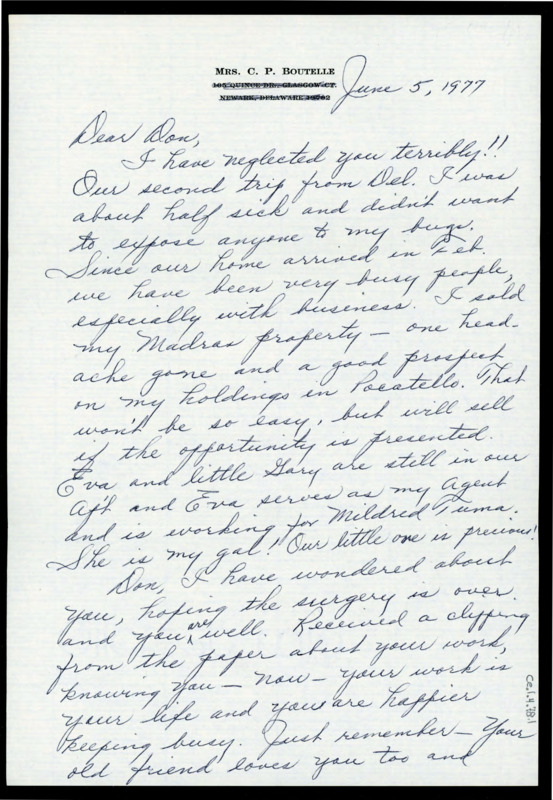 MRS. C. P. BOUTELLE
105 QUINCE DR., GLASGOW CT.
NEWARK, DELAWARE 19702
June 5, 1977
Dear Don,
I have neglected you terribly!!
Our second trip from Del. I was
about half sick and didn't want
to expose anyone to my bugs.
Since our home arrived in Feb.
we have been very busy people,
especially with business. I sold
my Madras property — one head-
ache gone and a good prospect
on my holdings in Pocatello. That
won't be so easy, but will sell
if the opportunity is presented.
Eva and little Gary are still in our
Apt and Eva serves as my Agent
and is working for Mildred Tuma.
She is my gal! Our little one is precious!
Don, I have wondered about
you, hoping the surgery is over
and you are well. Received a clipping
from the paper about your work,
knowing you — now — your work is
your life and you are happier
keeping busy. Just remember — Your
old friend loves you too and
Ce.1.4.78.1